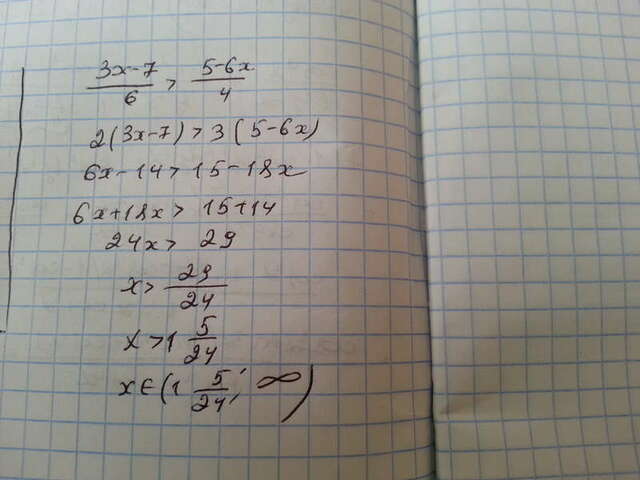 (3x-7)/6 > (5-6x)/4
2(3x-7)>3(5-6x)
6x-14>15-18x
6x+18x>15+14
24x> 29
x> 29/24
x>1 5/24
x∈(1 5/24; ∞)